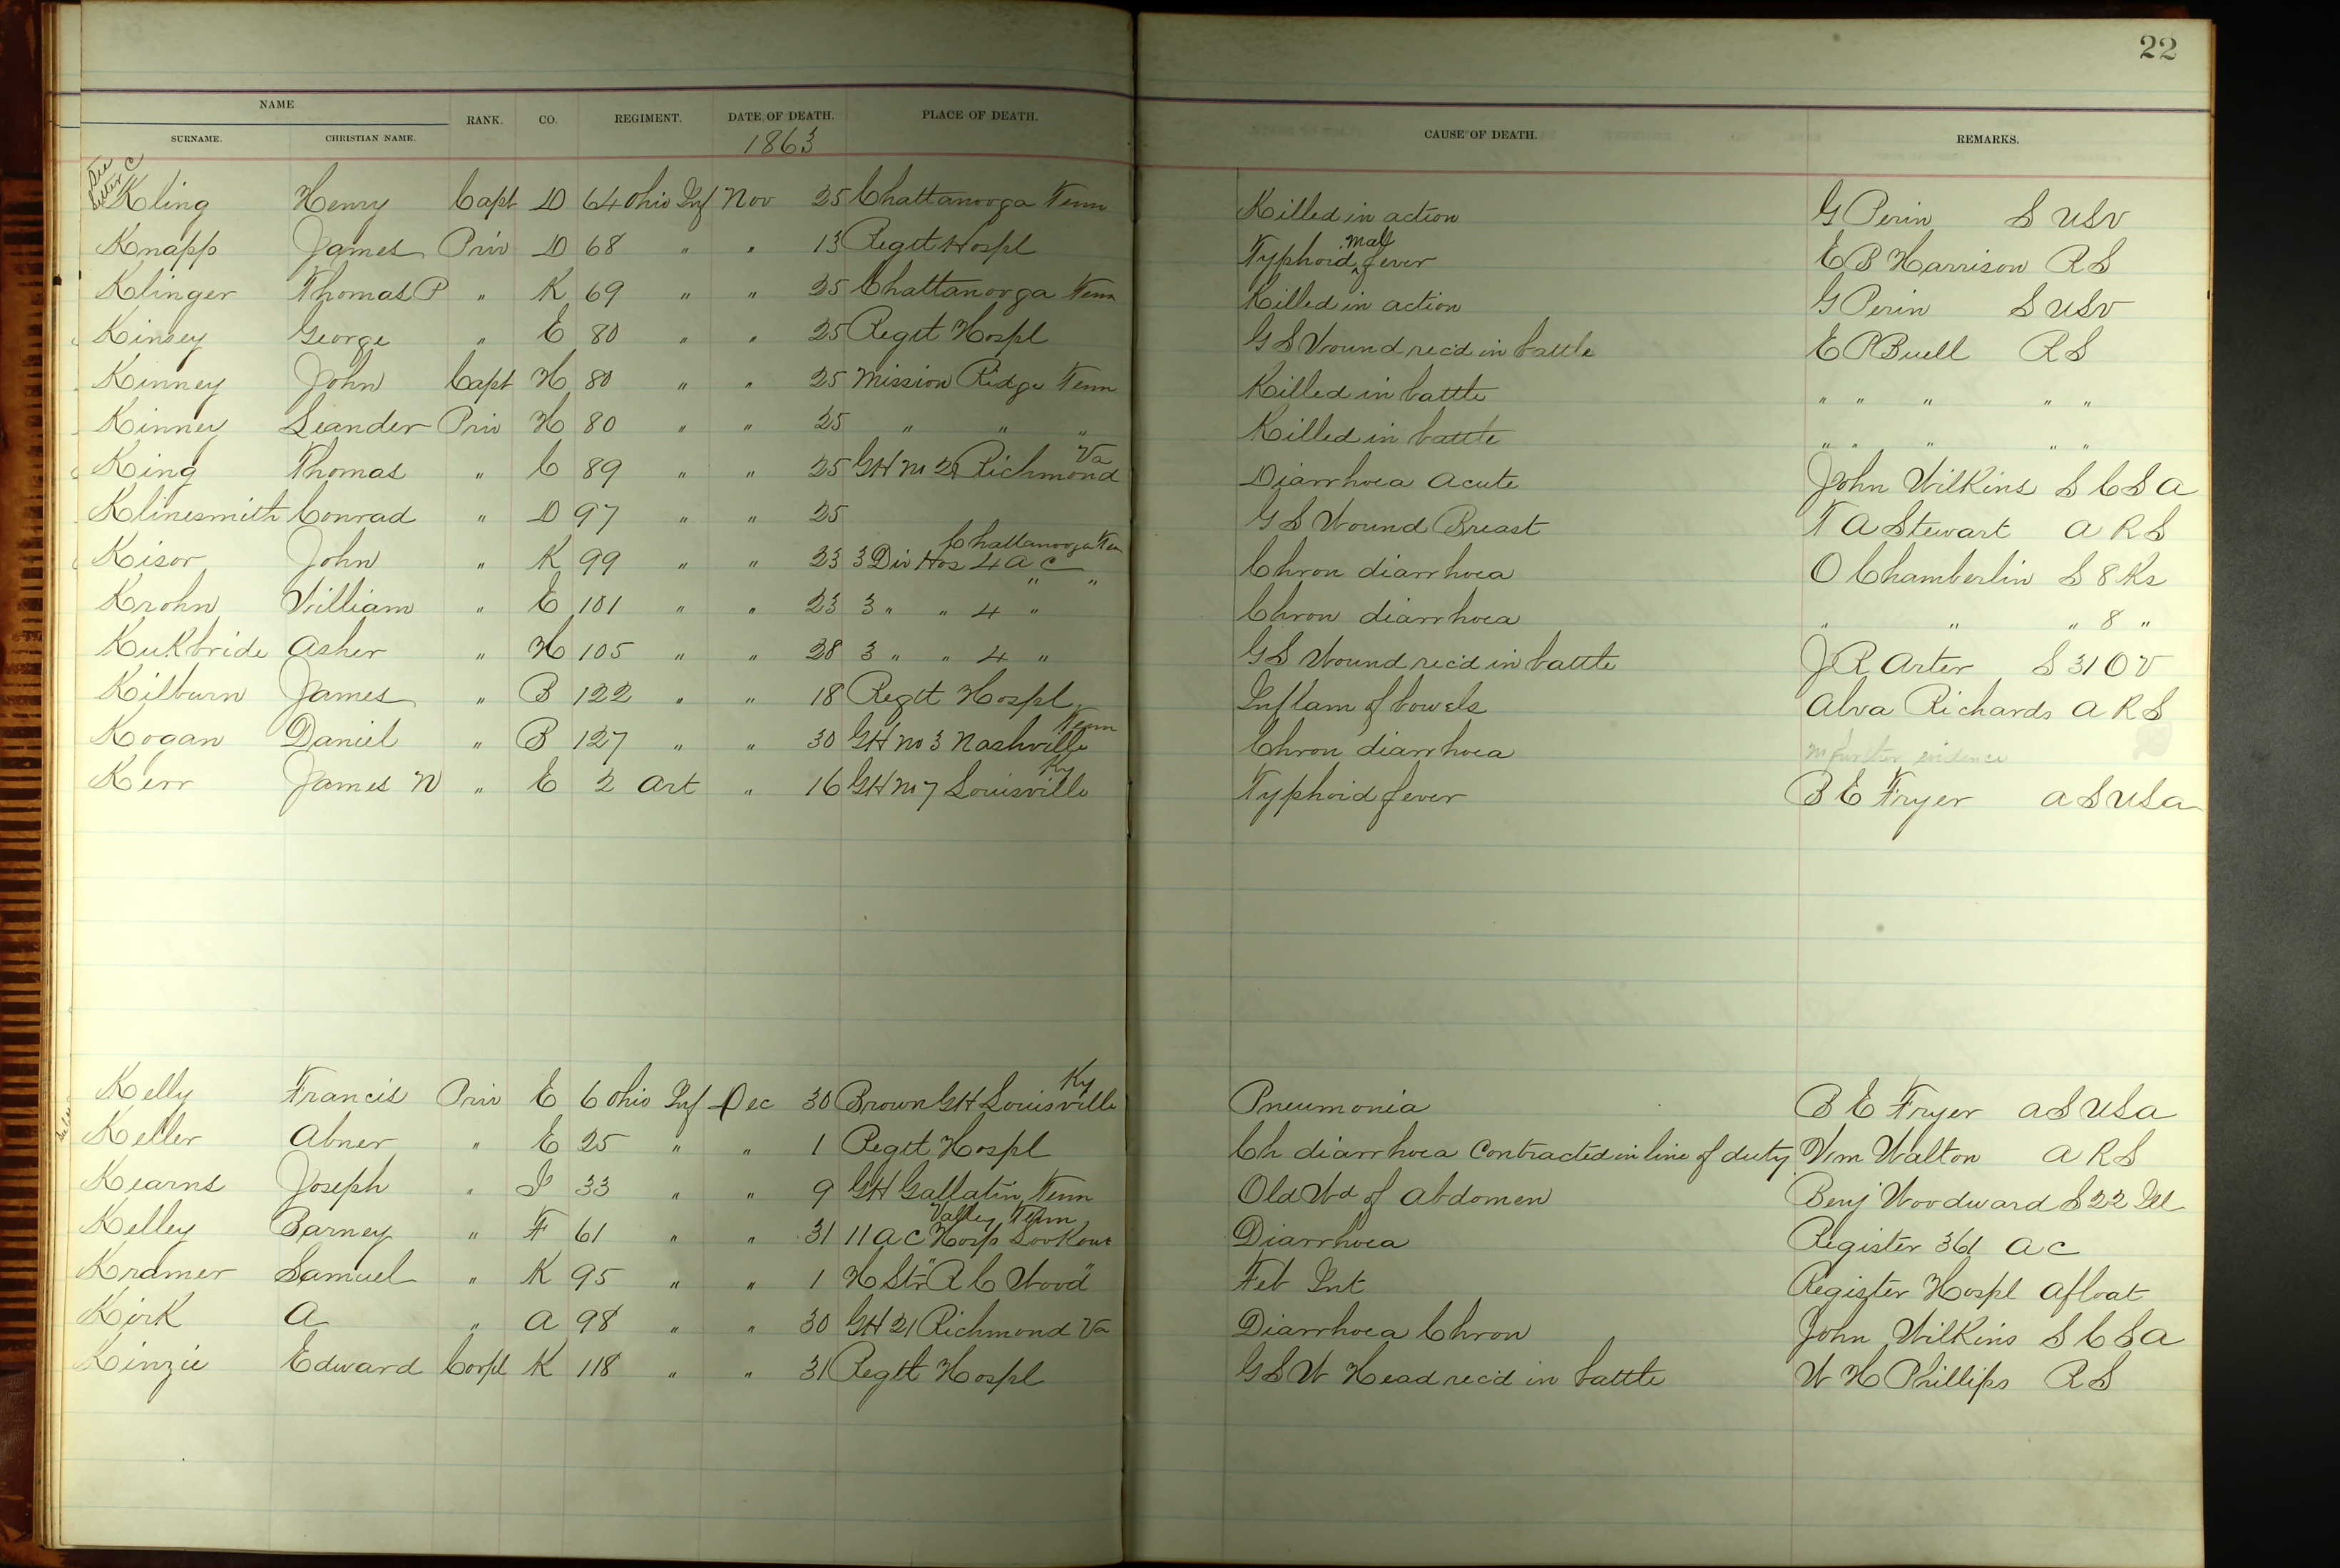 22
NAME RANK. CO. REGIMENT. DATE OF DEATH. PLACE OF DEATH. CAUSE OF DEATH. REMARKS.
SURNAME. CHRISTIAN NAME. 1863
See letter C
Kling Henry Capt D 64 Ohio Inf Nov 25 Chattanooga Tenn Killed in action G Perin S USV
Knapp James Priv D 68 " " 13 Regtt Hospl Typhoid Mal fever E B Harrison R S
Klinger Thomas P " K 69 " " 25 Chattanooga Tenn Killed in action G Perin S USV
Kinsey George " E 80 " " 25 Regtt Hospl G S Wound rec'd in battle E P Buell R S
Kinney John Capt H 80 " " 25 Mission Ridge Tenn Killed in battle " " " " "
Kinney Leander Priv H 80 " " 25 " " " Killed in battle " " " " "
King Thomas " C 89 " " 25 GH No 21 Richmond Va Diarrhoea Acute John Wilkins S C S A
Klinesmith Conrad " D 97 " " 25 G S Wound Breast T A Stewart A R S
Kisor John " K 99 " " 23 3 Div Hos 4 A C Chattanooga Ten Chron diarrhoea O Chamberlin S 8 Ks
Krohn William " E 101 " " 23 3 " " 4 " " " Chron diarrhoea " " " 8 "
Kukbride Asher " H 105 " " 28 3 " " 4 " G S Wound rec'd in battle J R Arter S 31 O V
Kilburn James " B 122 " " 18 Regtt Hospl Inflam of bowels Alva Richards A R S
Kogan Daniel " B 127 " " 30 GH No 3 Nashville Tenn Chron diarrhoea No further evidence
Kerr James N " E 2 Art " 16 GH No 7 Louisville Ky Typhoid fever B E Fryer A S U S A
Kelly Francis Priv E 6 Ohio Inf Dec 30 Brown GH Louisville Ky Pneumonia B E Fryer A S U S A
Keller Abner " E 25 " " 1 Regtt Hospl Ch diarrhoea Contracted in line of duty Wm Walton A R S
Kearns Joseph " I 33 " " 9 GH Gallatin Tenn Old Wd of Abdomen Benj Woodward S 22 Ill
Kelley Barney " F 61 " " 31 11 A C Hosp Lookout Valley Tenn Diarrhoea Register 361 A C
Kramer Samuel " K 95 " " 1 H Str "R C Wood" Feb Int Register Hospl Afloat
Kirk A " A 98 " " 30 GH 21 Richmond Va Diarrhoea Chron John Wilkins S C S A
Kinzie Edward Corpl K 118 " " 31 Regtt Hospl G S W Head rec'd in battle W H Phillips R S